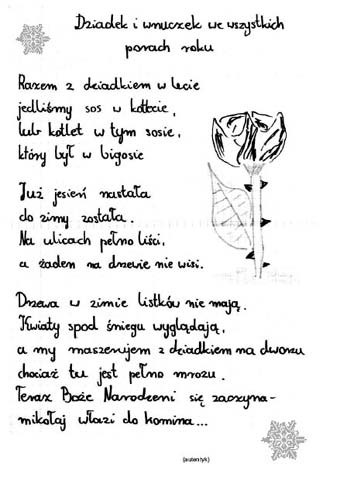 Dziadek i wnuczek we wszystkich
porach roku
Razem z dziadkiem w lecie
jedliśmy sos w kotlecie,
lub kotlet w tym sosie,
który był w bigosie
Już jesień nastała
do zimy została.
Na ulicach pełno liści,
a żaden na drzewie nie wisi.
Drzewa w zimie listków nie mają.
Kwiaty spod śniegu wyglądają,
a my maszerujem z dziadkiem na dworzu
chociaż tu jest pełno mrozu.
Teraz Boże Narodzeni się zaczyna-
mikołaj włazi do komina...
(autentyk)